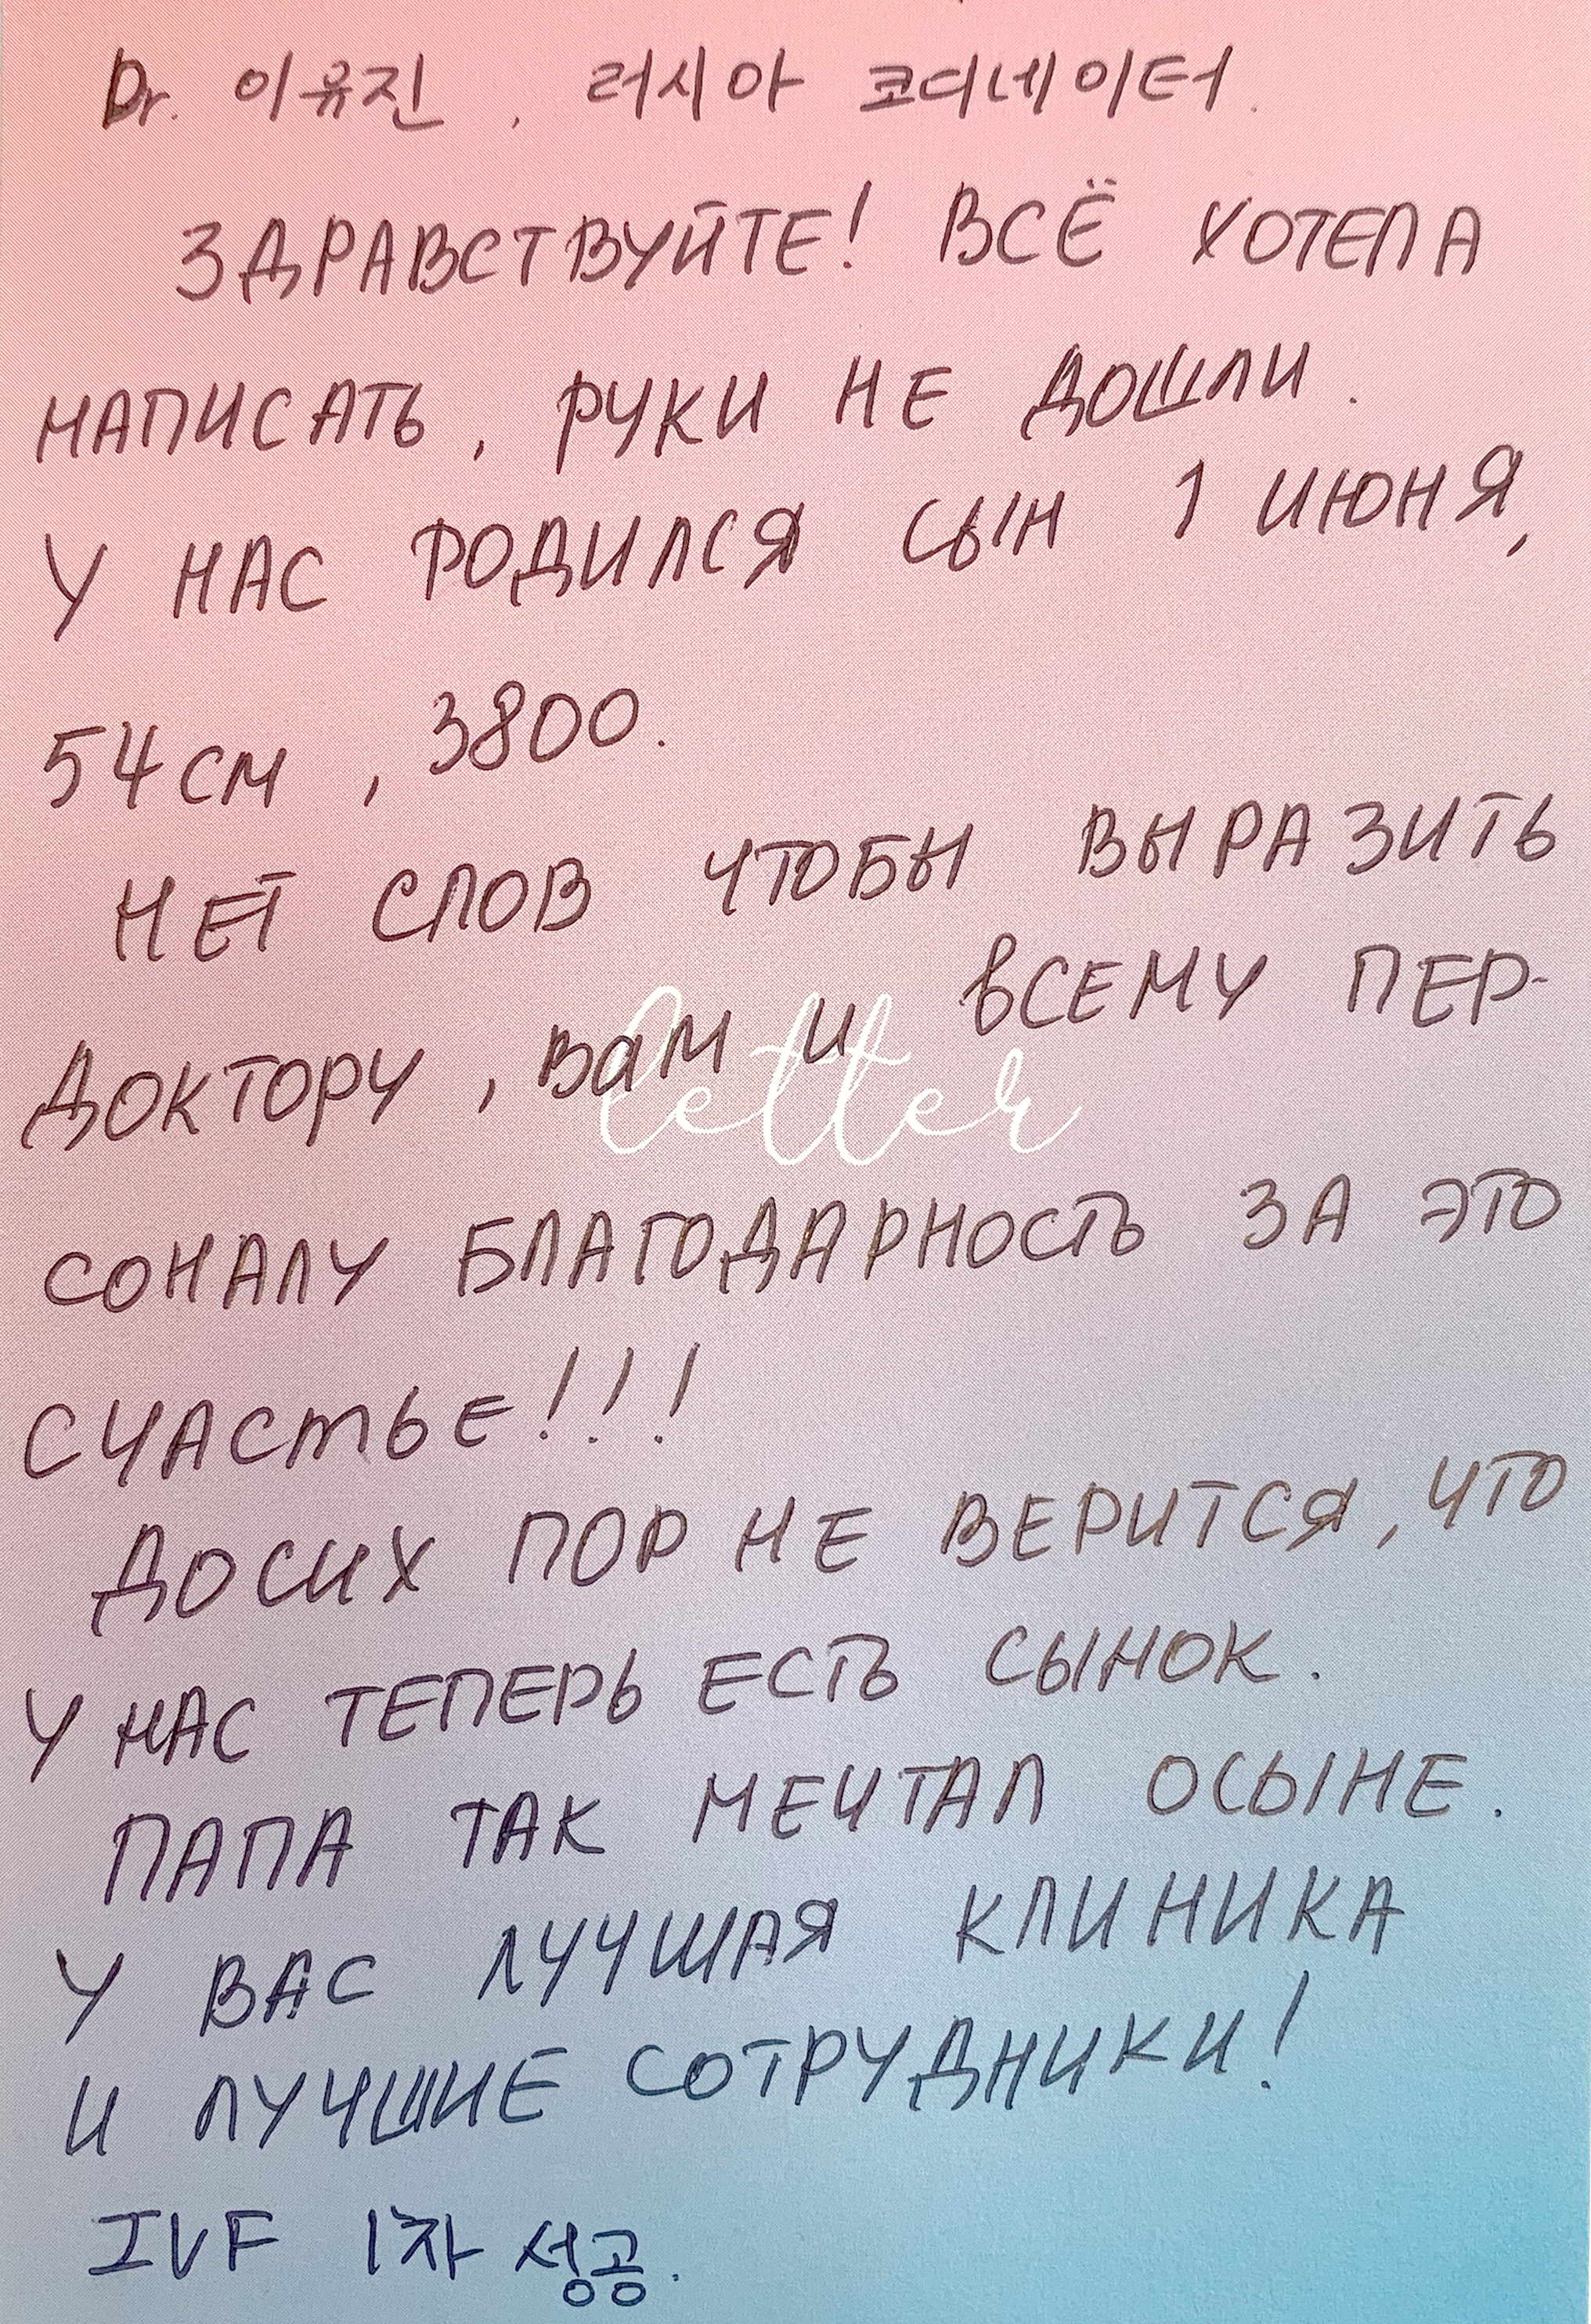 Dr. 이유진, 러시아 코디네이터.
ЗДРАВСТВУЙТЕ! ВСЁ ХОТЕЛА
НАПИСАТЬ, РУКИ НЕ ДОШЛИ.
У НАС РОДИЛСЯ СЫН 1 ИЮНЯ,
54 см, 3800.
НЕТ СЛОВ ЧТОБЫ ВЫРАЗИТЬ
ДОКТОРУ, ВАМ И ВСЕМУ ПЕР-
letter
СОНАЛУ БЛАГОДАРНОСТЬ ЗА ЭТО
СЧАСТЬЕ!!!
ДОСИХ ПОР НЕ ВЕРИТСЯ, ЧТО
У НАС ТЕПЕРЬ ЕСТЬ СЫНОК.
ПАПА ТАК МЕЧТАЛ ОСЫНЕ.
У ВАС ЛУЧШАЯ КЛИНИКА
И ЛУЧШИЕ СОТРУДНИКИ!
IVF 1차 성공.